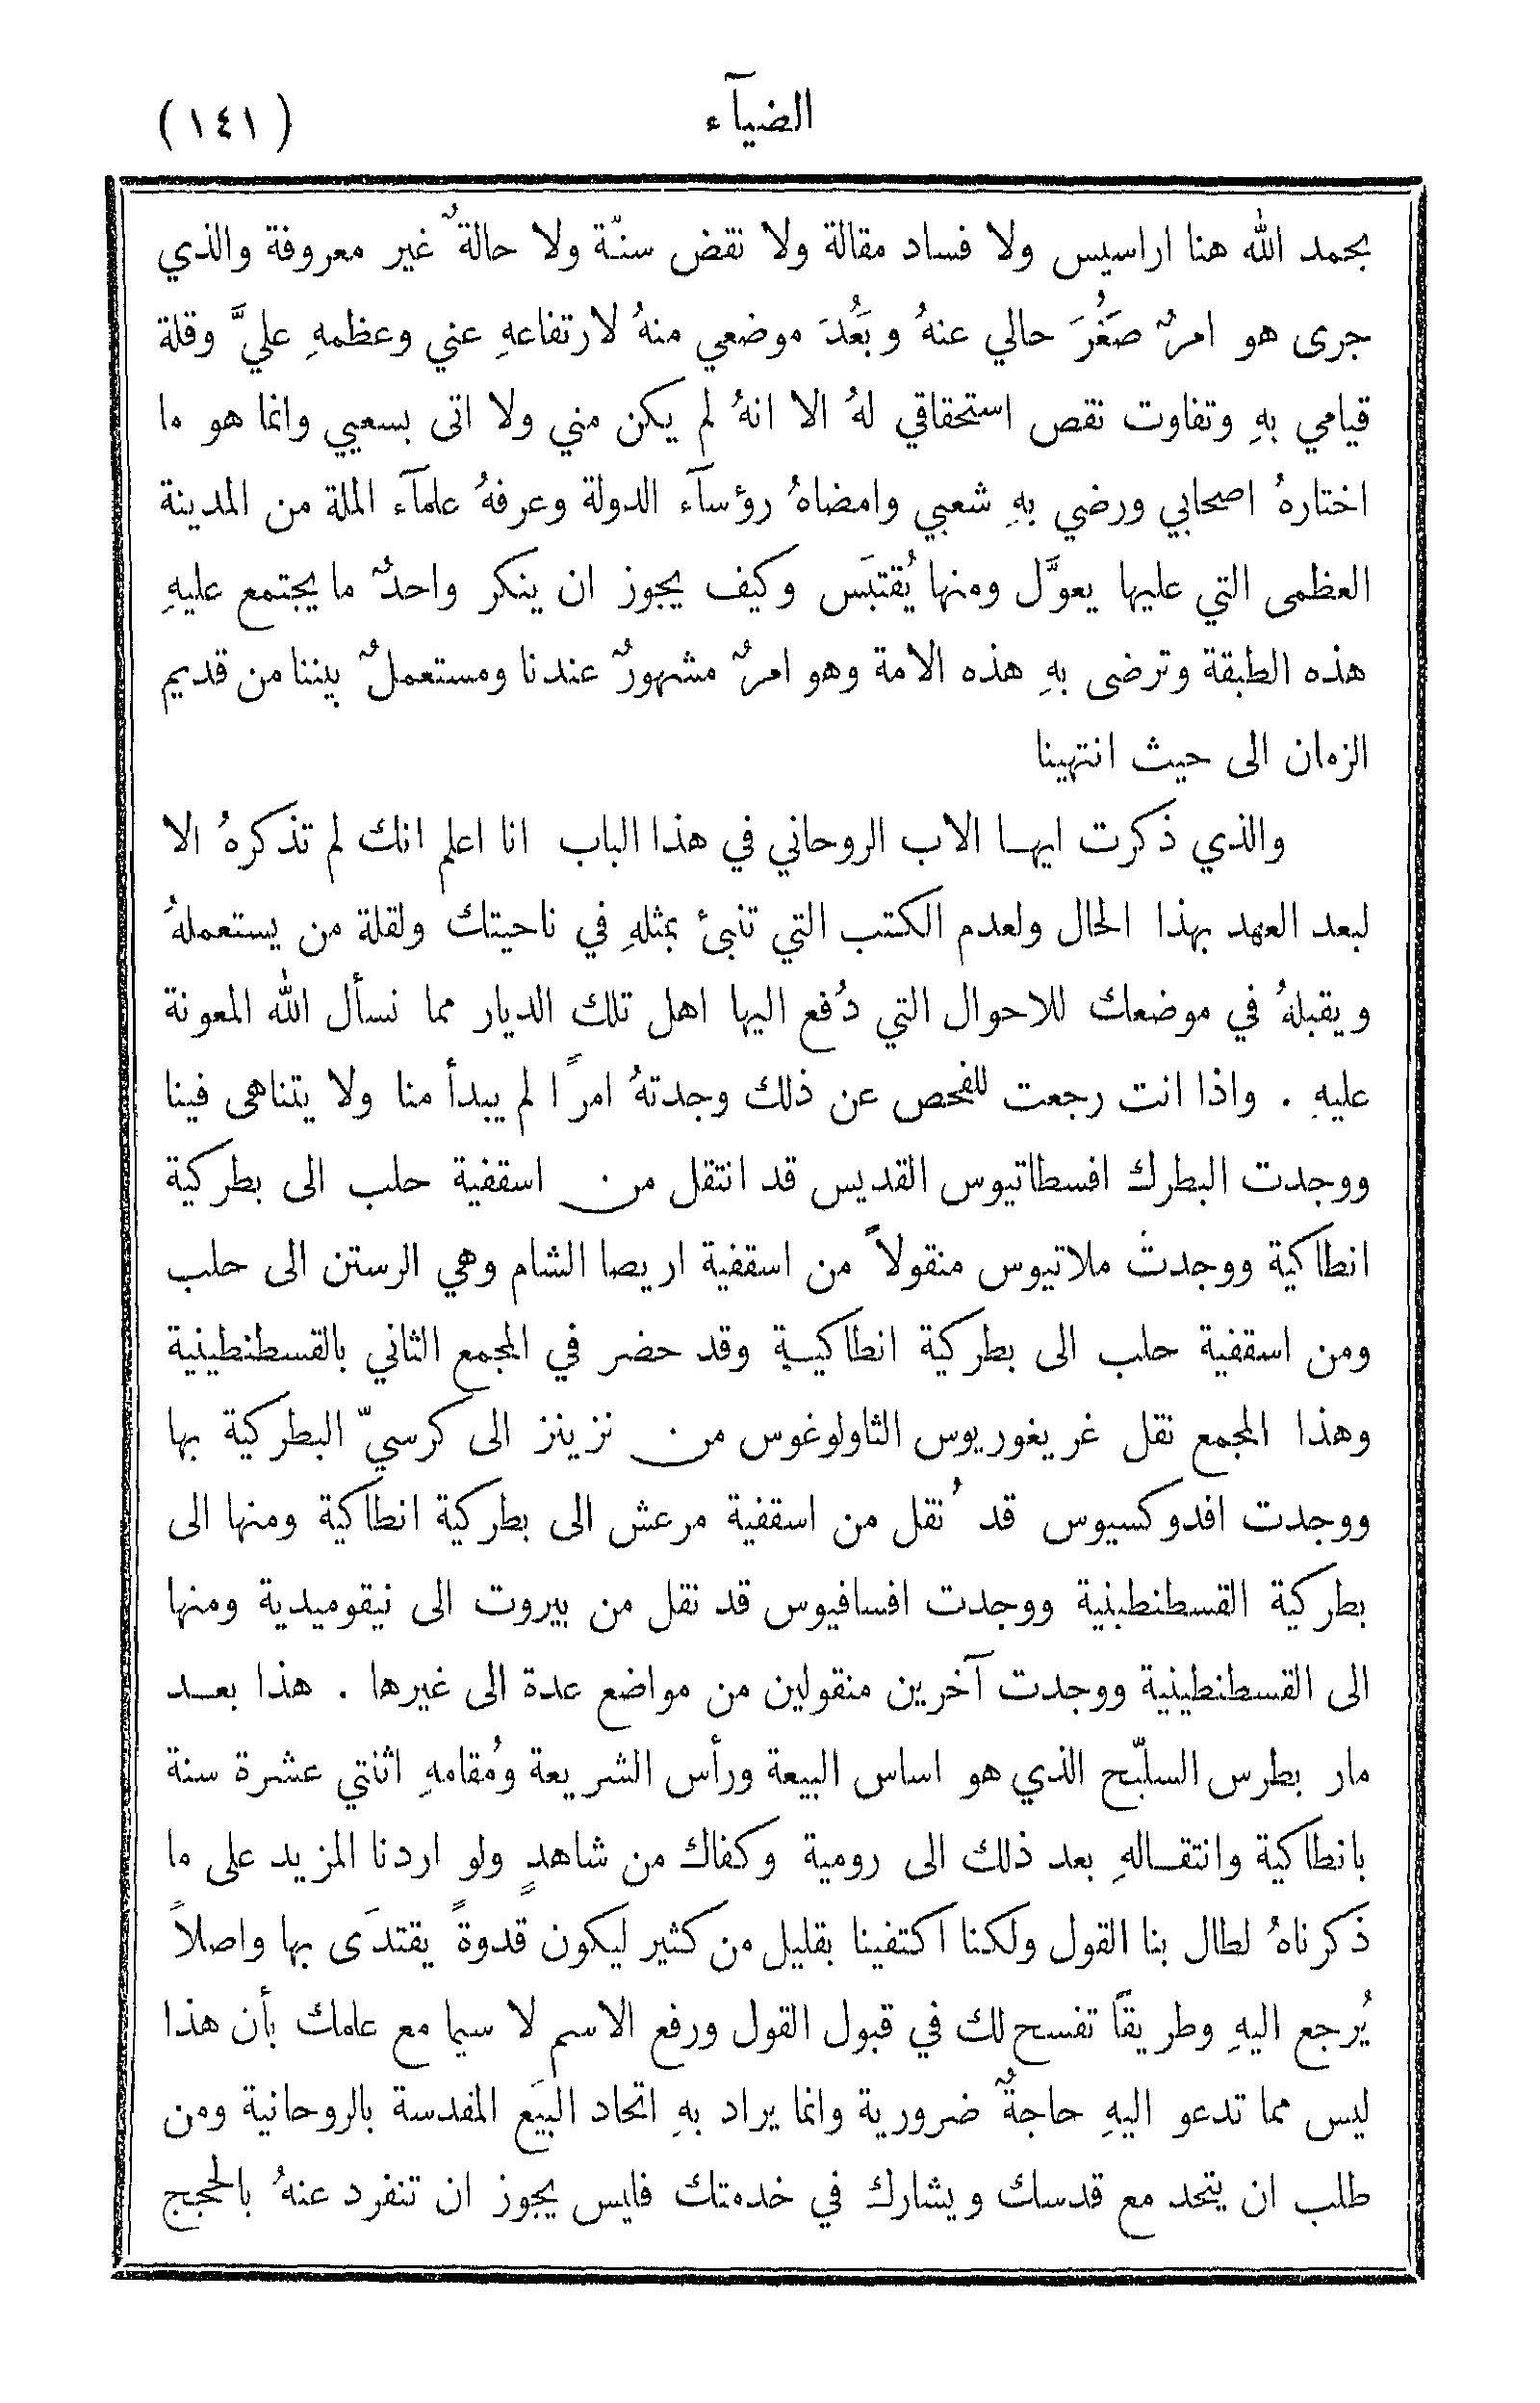 الضيآء
(١٤١)
بحمد الله هنا اراسيس ولا فساد مقالة ولا نقض سنّة ولا حالةٌ غير معروفة والذي
جرى هو امرٌ صَغُرَ حالي عنهُ وبَعُدَ موضعي منهُ لارتفاعهِ عني وعظمهِ عليَّ وقلة
قيامي بهِ وتفاوت نقص استحقاقي لهُ الا انهُ لم يكن مني ولا اتى بسعيي وانما هو ما
اختارهُ اصحابي ورضي بهِ شعبي وامضاهُ رؤسآء الدولة وعرفهُ علمآء الملة من المدينة
العظمى التي عليها يعوَّل ومنها يُقتبَس وكيف يجوز ان ينكر واحدٌ ما يجتمع عليهِ
هذه الطبقة وترضى بهِ هذه الامة وهو امرٌ مشهورٌ عندنا ومستعملٌ بيننا من قديم
الزمان الى حيث انتهينا
والذي ذكرت ايهـا الاب الروحاني في هذا الباب انا اعلم انك لم تذكرهُ الا
لبعد العهد بهذا الحال ولعدم الكتب التي تنبئ بمثلهِ في ناحيتك ولقلة من يستعملهُ
ويقبلهُ في موضعك للاحوال التي دُفع اليها اهل تلك الديار مما نسأل الله المعونة
عليهِ . واذا انت رجعت للفحص عن ذلك وجدتهُ امرًا لم يبدأ منا ولا يتناهى فينا
ووجدت البطرك افسطاتيوس القديس قد انتقل من اسقفية حلب الى بطركية
انطاكية ووجدتَ ملاتيوس منقولاً من اسقفية اريصا الشام وهي الرستن الى حلب
ومن اسقفية حلب الى بطركية انطاكيـة وقد حضر في المجمع الثاني بالقسطنطينية
وهذا المجمع نقل غريغوريوس الثاولوغوس من نزينز الى كرسيّ البطركية بها
ووجدت افدوكسيوس قد نُقل من اسقفية مرعش الى بطركية انطاكية ومنها الى
بطركية القسطنطينية ووجدت افسافيوس قد نقل من بيروت الى نيقوميدية ومنها
الى القسطنطينية ووجدت آخرين منقولين من مواضع عدة الى غيرها . هذا بعـد
مار بطرس السلّيح الذي هو اساس البيعة ورأس الشريعة ومُقامهِ اثنتي عشرة سنة
بانطاكية وانتقـالهِ بعد ذلك الى رومية وكفاك من شاهدٍ ولو اردنا المزيد على ما
ذكرناهُ لطال بنا القول ولكنا اكتفينا بقليل من كثير ليكون قدوةً يقتدَى بها واصلاً
يُرجع اليهِ وطريقًا تفسح لك في قبول القول ورفع الاسم لا سيما مع علمك بأن هذا
ليس مما تدعو اليهِ حاجةٌ ضرورية وانما يراد بهِ اتحاد البيَع المقدسة بالروحانية ومن
طلب ان يتحد مع قدسك ويشارك في خدمتك فليس يجوز ان تنفرد عنهُ بالحجج